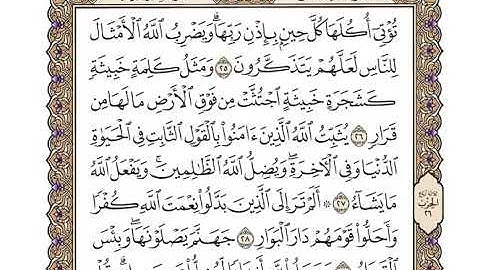 تُؤْتِىٓ أُكُلَهَا كُلَّ حِينٍۭ بِإِذْنِ رَبِّهَاۗ وَيَضْرِبُ ٱللَّهُ ٱلْأَمْثَالَ
لِلنَّاسِ لَعَلَّهُمْ يَتَذَكَّرُونَ ٢٥ وَمَثَلُ كَلِمَةٍ خَبِيثَةٍ
كَشَجَرَةٍ خَبِيثَةٍ ٱجْتُثَّتْ مِن فَوْقِ ٱلْأَرْضِ مَا لَهَا مِن
قَرَارٍ ٢٦ يُثَبِّتُ ٱللَّهُ ٱلَّذِينَ ءَامَنُوا۟ بِٱلْقَوْلِ ٱلثَّابِتِ فِى ٱلْحَيَوٰةِ
ٱلدُّنْيَا وَفِى ٱلْءَاخِرَةِۖ وَيُضِلُّ ٱللَّهُ ٱلظَّـٰلِمِينَۚ وَيَفْعَلُ ٱللَّهُ
مَا يَشَآءُ ٢٧ ۞ أَلَمْ تَرَ إِلَى ٱلَّذِينَ بَدَّلُوا۟ نِعْمَتَ ٱللَّهِ كُفْرًا
وَأَحَلُّوا۟ قَوْمَهُمْ دَارَ ٱلْبَوَارِ ٢٨ جَهَنَّمَ يَصْلَوْنَهَاۖ وَبِئْسَ
الحزب
٢٦